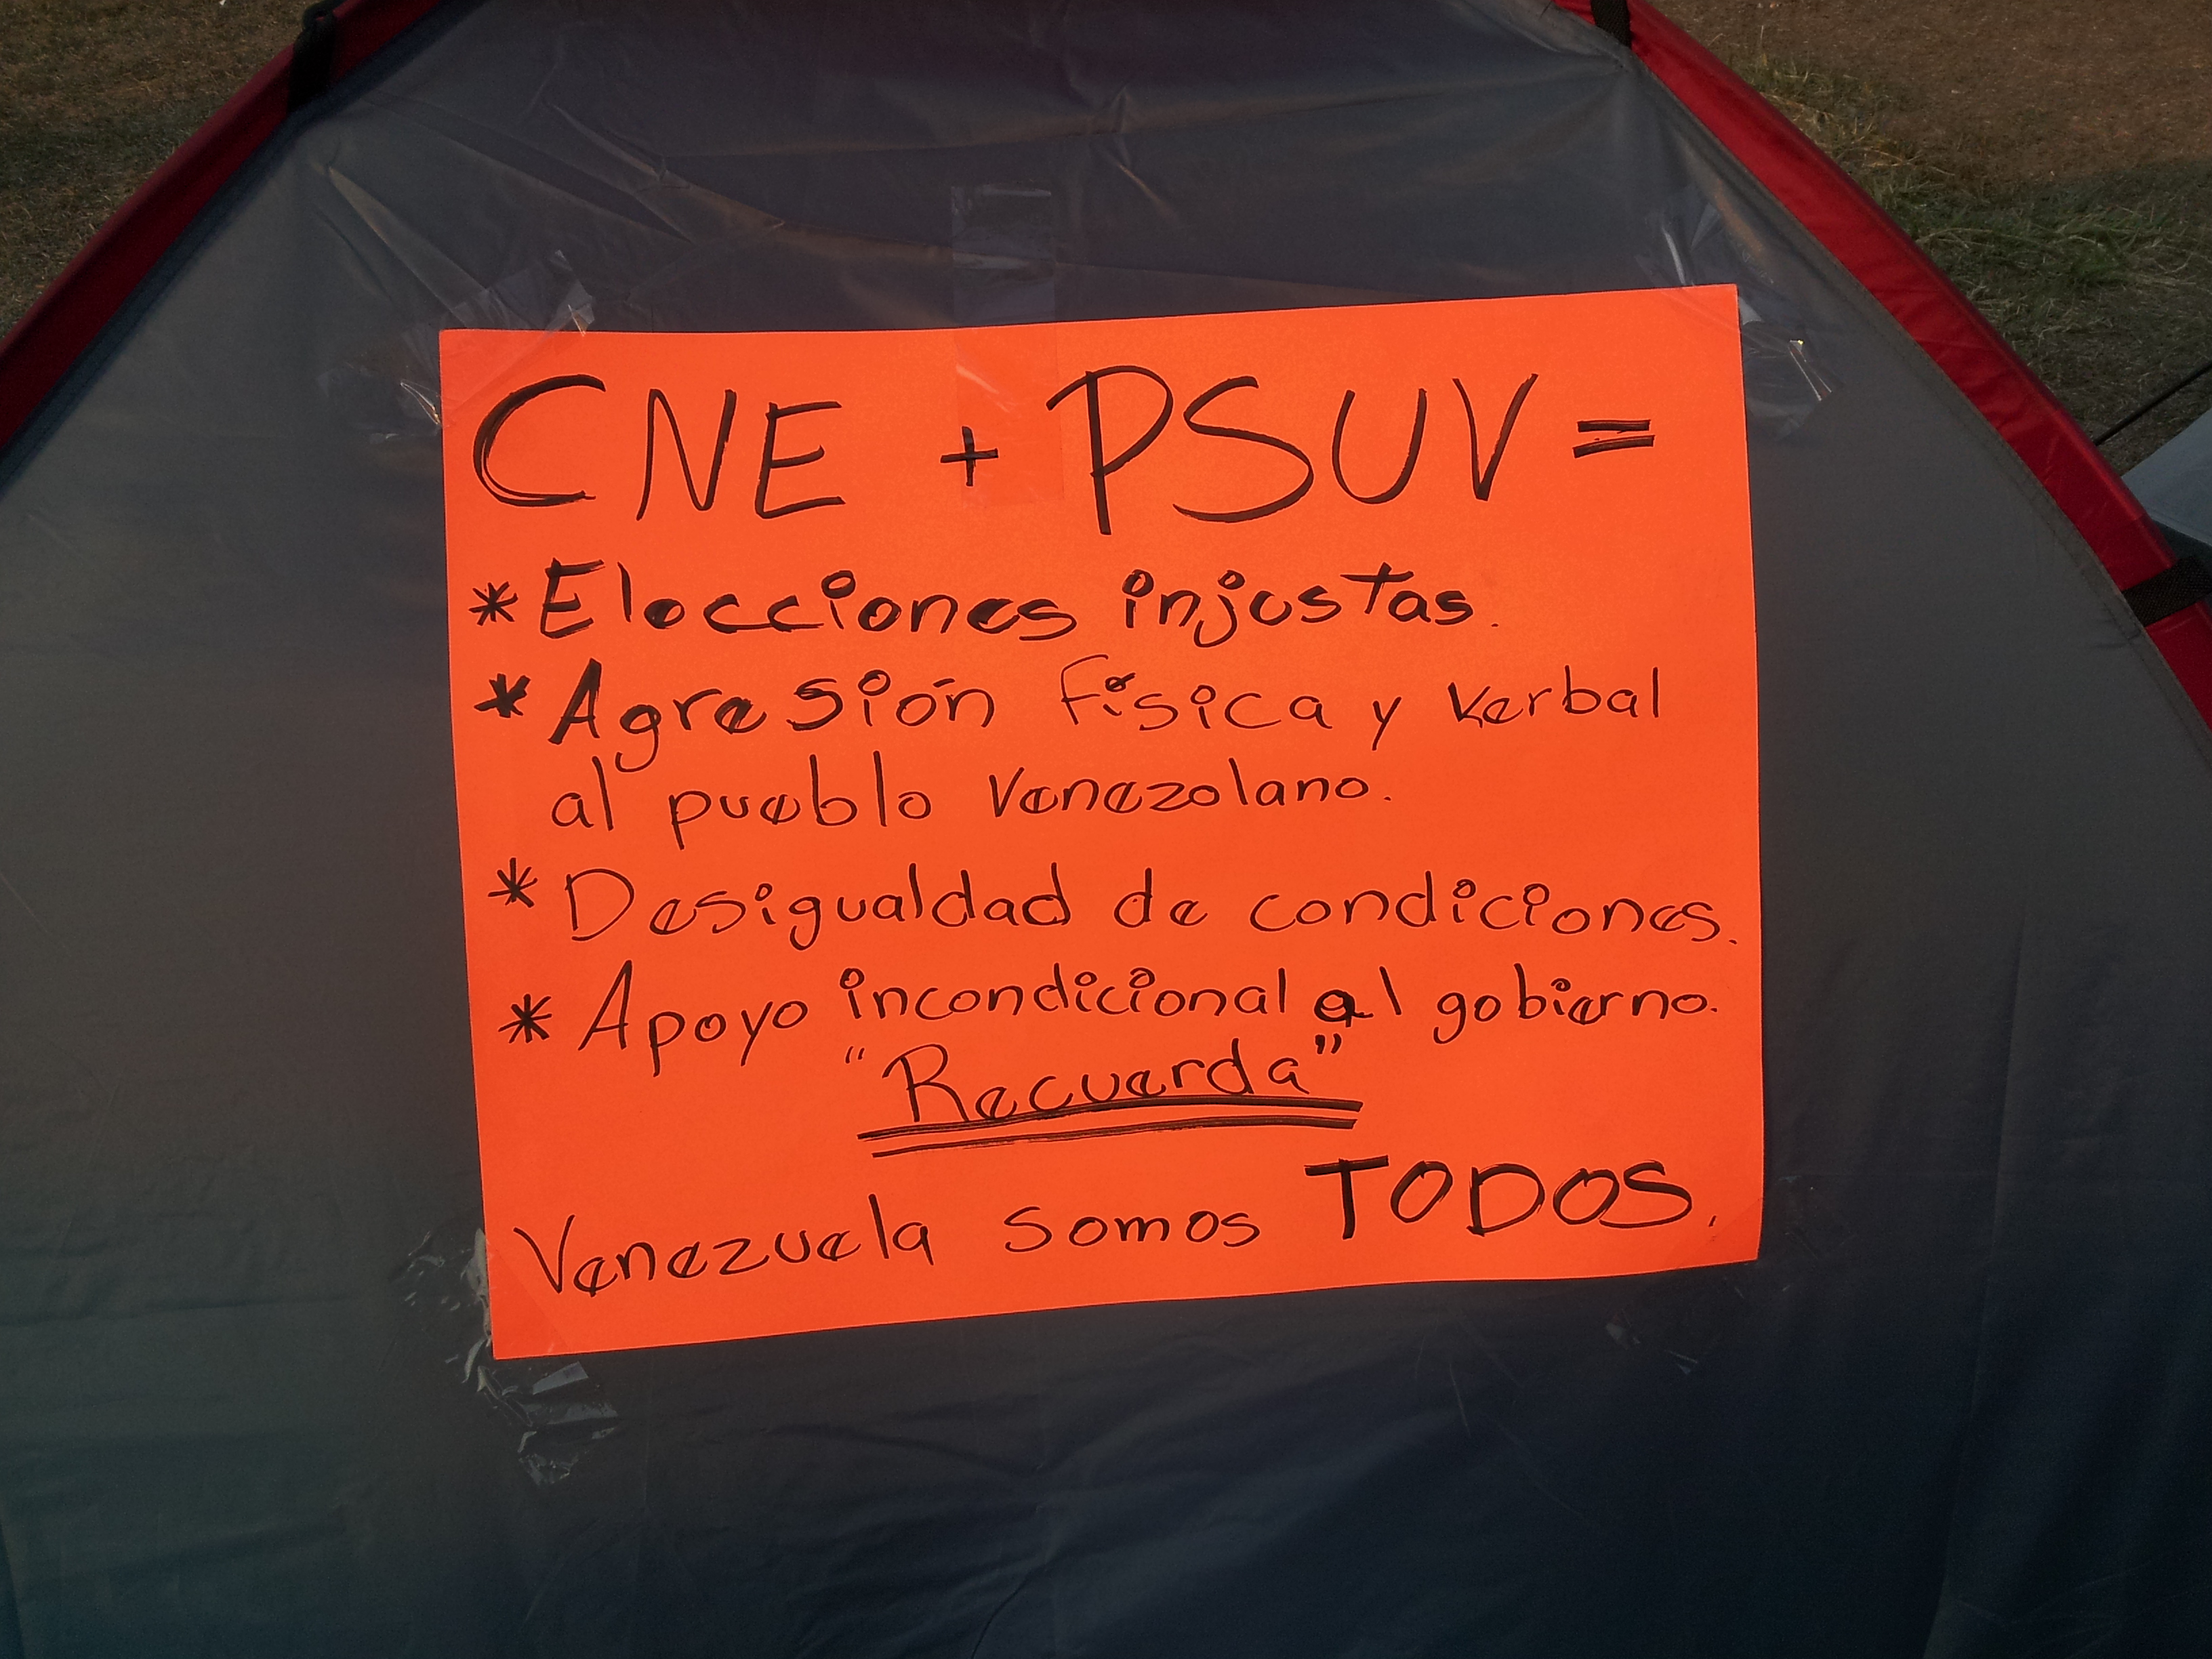 CNE + PSUV =
* Elecciones injustas.
* Agresión física y verbal
al pueblo Venezolano.
* Desigualdad de condiciones.
* Apoyo incondicional al gobierno.
"Recuerda"
Venezuela somos TODOS.